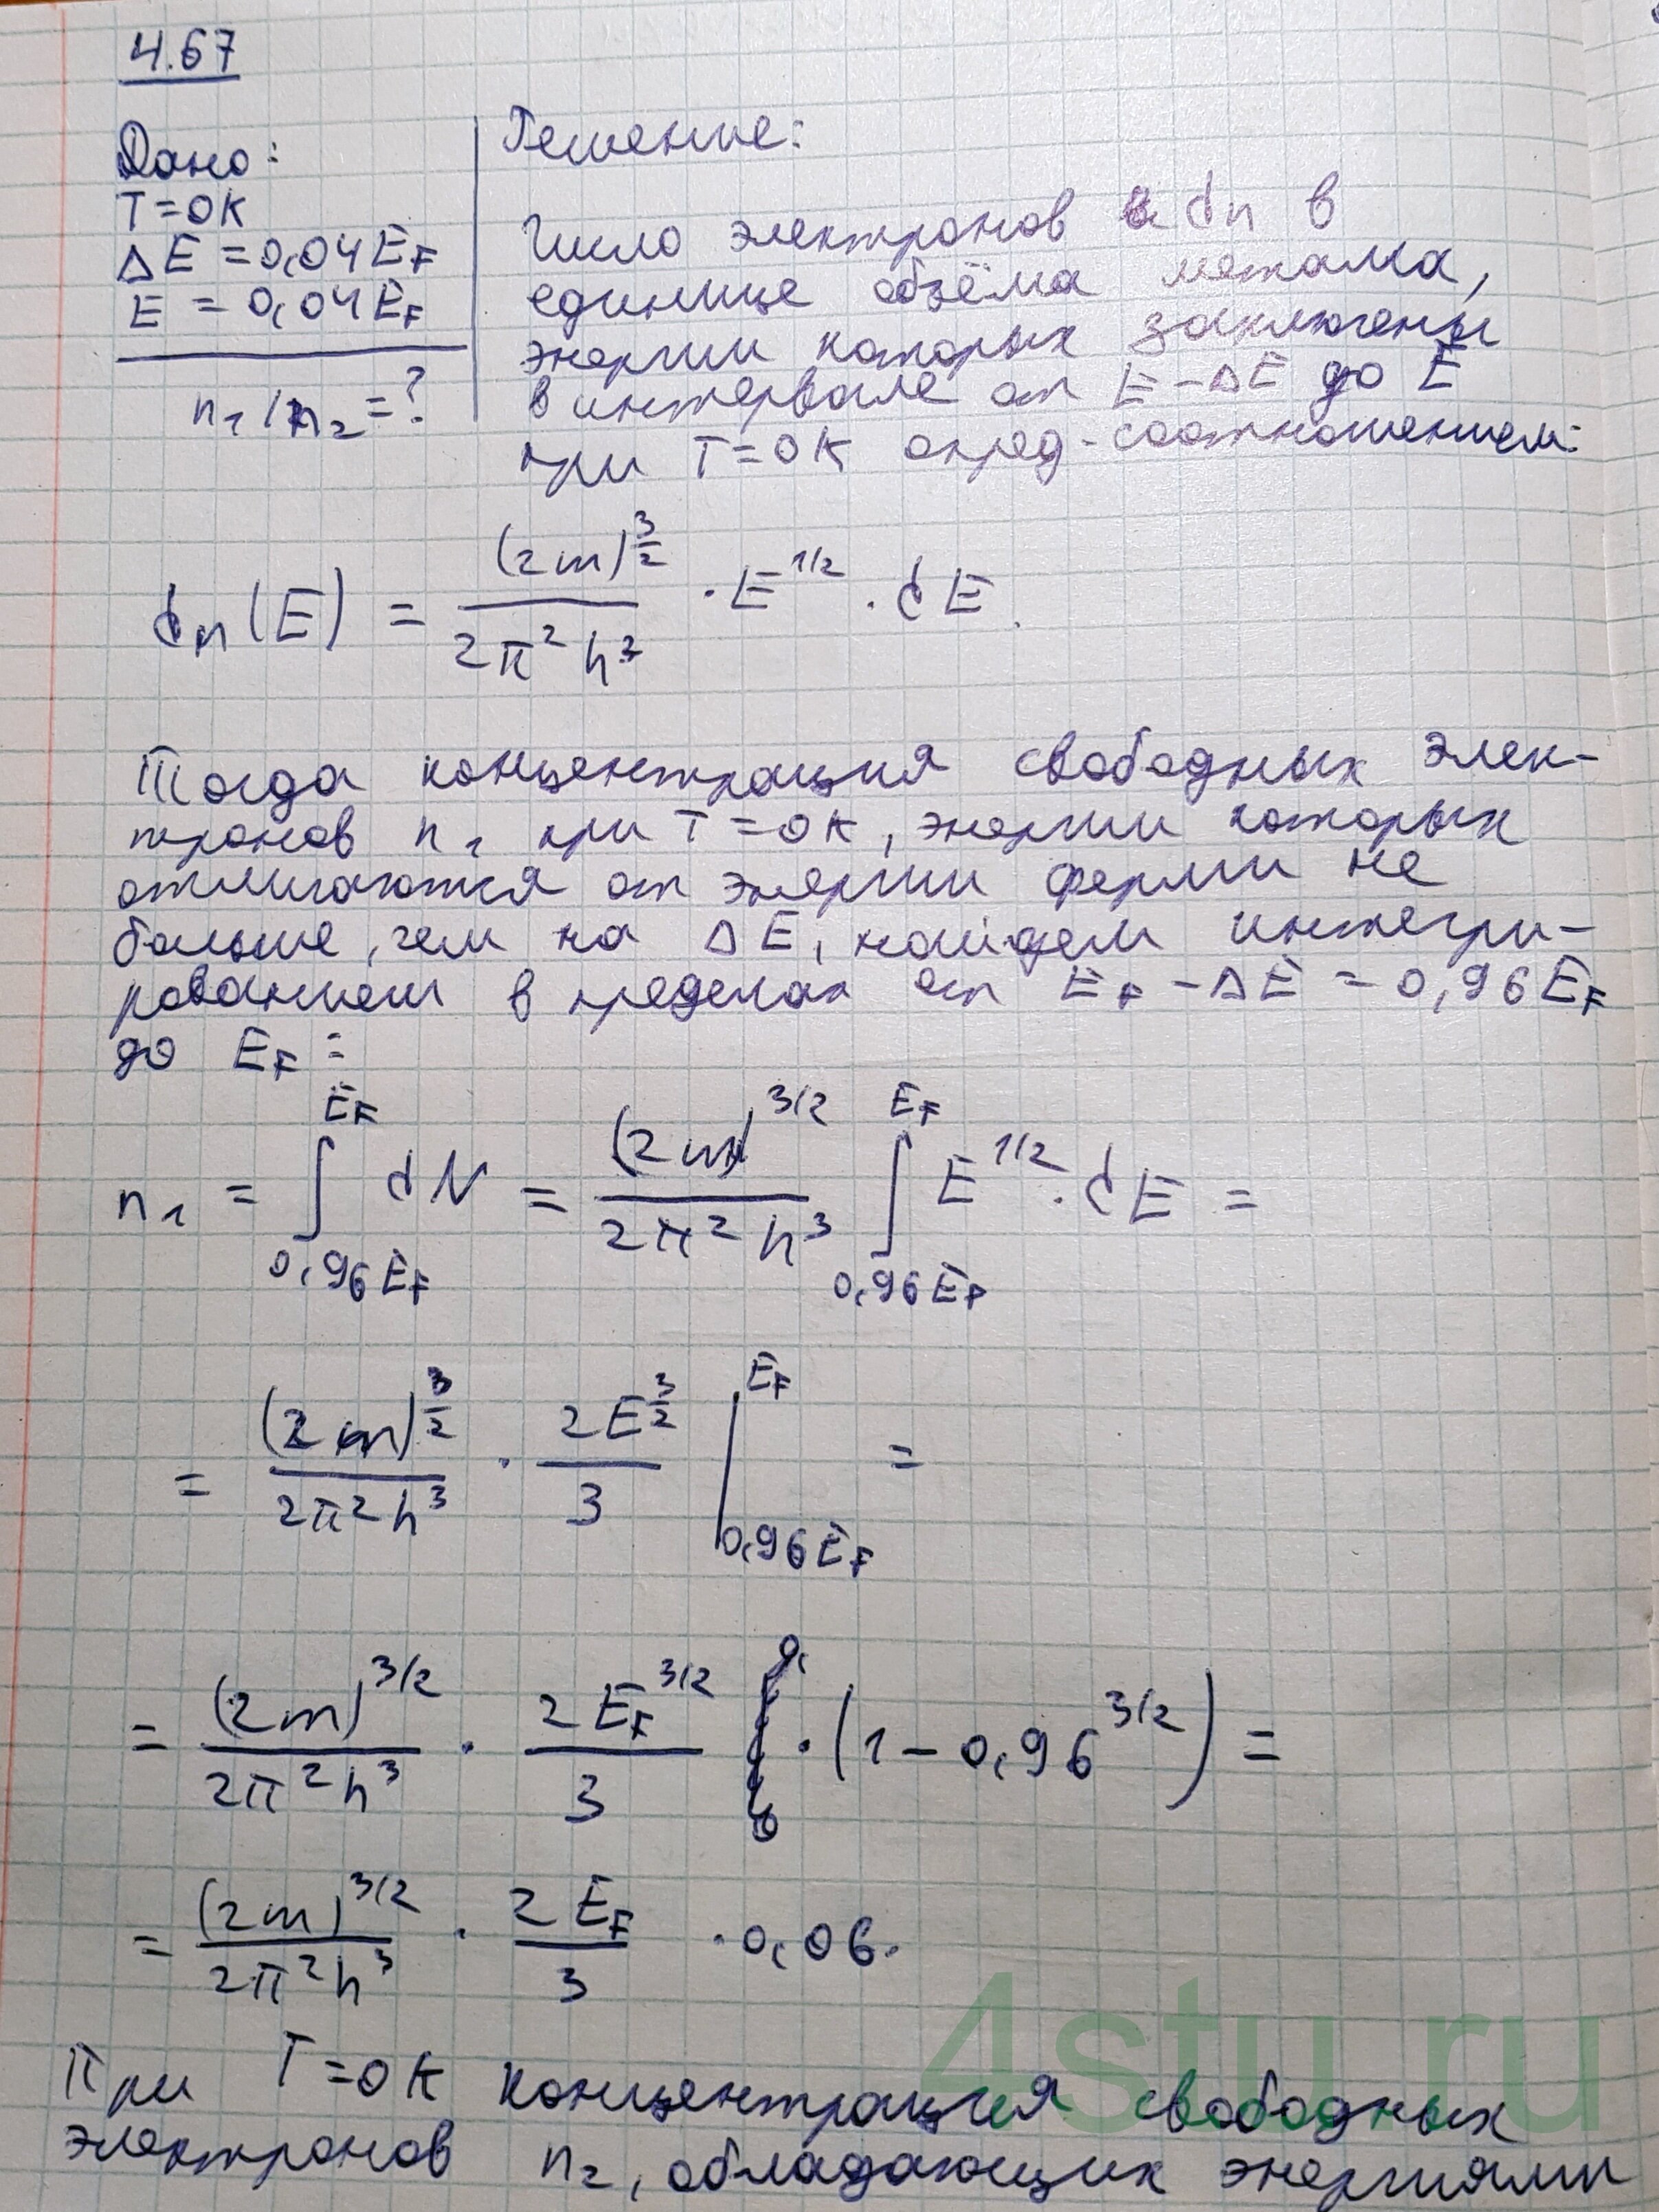 4.67
Дано:
T=0K
ΔE=0,04E_F
E=0,04E_F
n₁/n₂=?
Решение:
Число электронов dn в
единице объёма металла,
энергии которых заключены
в интервале от E-ΔE до E
при T=0K опред-соотношением:
dn(E) = (2m)^{3/2} / 2π²h³ · E^{1/2} · dE.
Тогда концентрация свободных элек-
тронов n₁ при T=0K, энергии которых
отличаются от энергии ферми не
больше, чем на ΔE, найдем интегри-
рованием в пределах от E_F-ΔE=0,96E_F
до E_F:
n₁ = ∫_{0,96E_F}^{E_F} dN = (2m)^{3/2} / 2π²h³ ∫_{0,96E_F}^{E_F} E^{1/2} · dE =
= (2m)^{3/2} / 2π²h³ · 2E^{3/2} / 3 |_{0,96E_F}^{E_F} =
= (2m)^{3/2} / 2π²h³ · 2E_F^{3/2} / 3 · (1-0,96^{3/2}) =
= (2m)^{3/2} / 2π²h³ · 2E_F / 3 · 0,06.
При T=0K концентрация свободных
электронов n₂, обладающих энергиями
4stu.ru